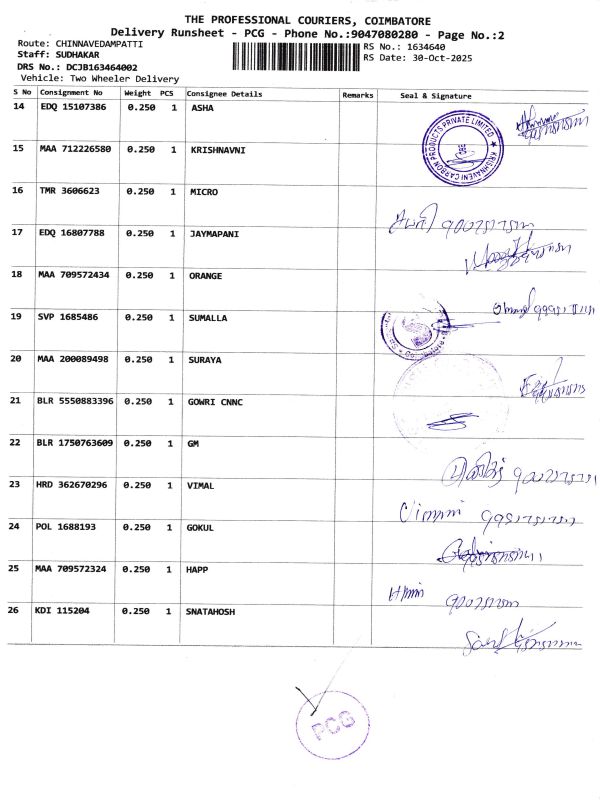 THE PROFESSIONAL COURIERS, COIMBATORE
Delivery Runsheet - PCG - Phone No.:9047080280 - Page No.:2
Route: CHINNAVEDAMPATTI
RS No.: 1634640
Staff: SUDHAKAR
RS Date: 30-Oct-2025
DRS No.: DCJB163464002
Vehicle: Two Wheeler Delivery
S No Consignment No Weight PCS Consignee Details Remarks Seal & Signature
14 EDQ 15107386 0.250 1 ASHA
KRISHNAVENI CARBON PRODUCTS PRIVATE LIMITED
15 MAA 712226580 0.250 1 KRISHNAVNI
16 TMR 3606623 0.250 1 MICRO
17 EDQ 16807788 0.250 1 JAYMAPANI
18 MAA 709572434 0.250 1 ORANGE
19 SVP 1685486 0.250 1 SUMALLA
20 MAA 200089498 0.250 1 SURAYA
21 BLR 5550883396 0.250 1 GOWRI CNNC
22 BLR 1750763609 0.250 1 GM
23 HRD 362670296 0.250 1 VIMAL
24 POL 1688193 0.250 1 GOKUL
25 MAA 709572324 0.250 1 HAPP
26 KDI 115204 0.250 1 SNATAHOSH
PCG